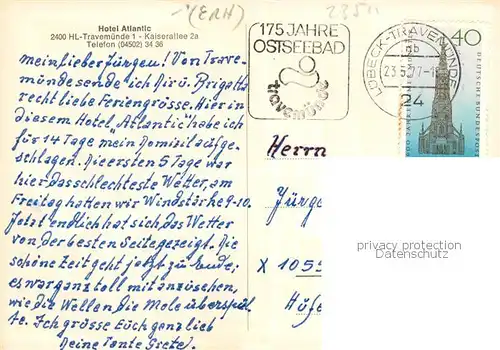 (ERH)
2351
Hotel Atlantic
2400 HL-Travemünde 1 - Kaiserallee 2a
Telefon (04502) 34 36
175 JAHRE
OSTSEEBAD
travemünde
LÜBECK-TRAVEMÜNDE
gb
23.5.77-1
24
40
DEUTSCHE BUNDESPOST
mein lieber Jürgen! Von Trave-
münde sende ich Dir ü. Brigatta
recht liebe Feriengrüsse. Hier in
diesem Hotel „Atlantic" habe ich
für 14 Tage mein Domizil aufge-
schlagen. Die ersten 5 Tage war
hier das schlechteste Wetter, am
Freitag hatten wir Windstärke 9-10.
Jetzt endlich hat sich das Wetter
von der besten Seite gezeigt. Die
schöne Zeit geht jetzt zu Ende;
es war ganz toll mit anzusehen,
wie die Wellen die Mole überspül-
te. Ich grüsse Euch ganz lieb
Deine Tante Grete.
Herrn
Jürge
X 1055
Hüfe
privacy protection
Datenschutz